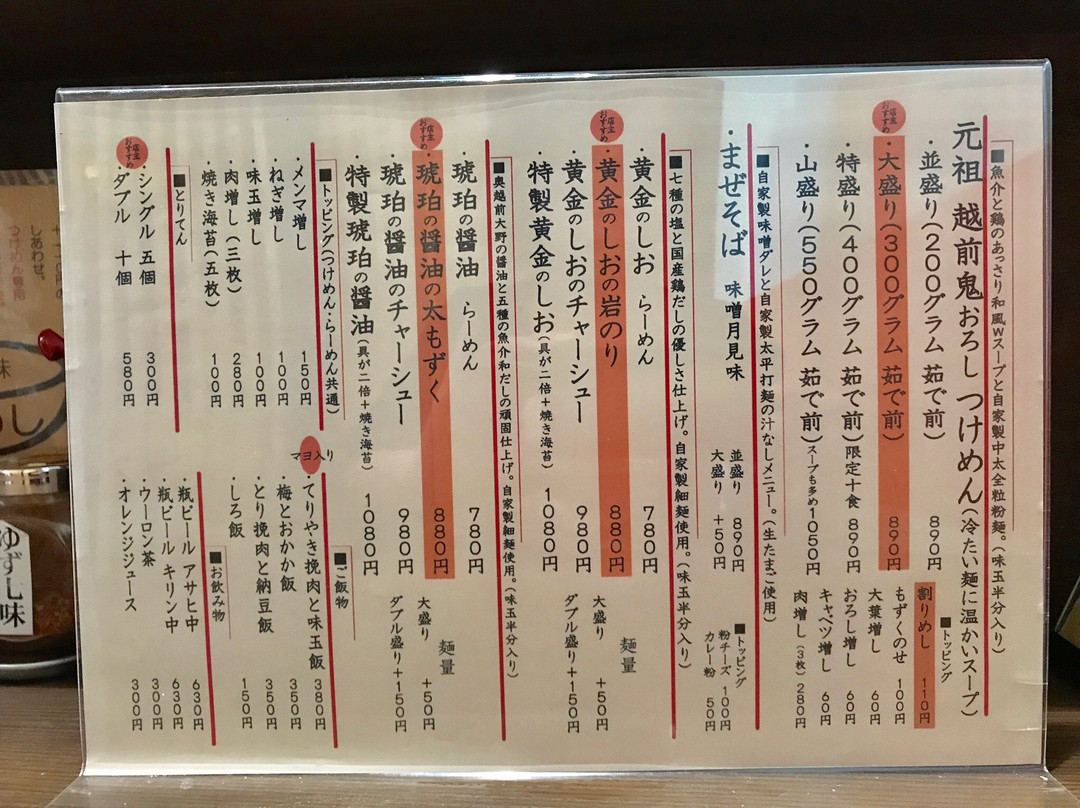 ■魚介と鶏のあっさり和風Wスープと自家製中太全粒粉麺。(味玉半分入り)
元祖 越前鬼おろし つけめん(冷たい麺に温かいスープ)
・並盛り(200グラム 茹で前) 890円
店主おすすめ
・大盛り(300グラム 茹で前) 890円
・特盛り(400グラム 茹で前)限定十食 890円
・山盛り(550グラム 茹で前)スープも多め1050円
■トッピング
割りめし 110円
もずくのせ 100円
大葉増し 60円
おろし増し 60円
キャベツ増し 60円
肉増し(3枚) 280円
■自家製味噌ダレと自家製太平打麺の汁なしメニュー。(生たまご使用)
・まぜそば 味噌月見味
並盛り 890円
大盛り +50円
■トッピング
粉チーズ 100円
カレー粉 50円
■七種の塩と国産鶏だしの優しさ仕上げ。自家製細麺使用。(味玉半分入り)
・黄金のしお らーめん 780円
店主おすすめ
・黄金のしおの岩のり 880円
・黄金のしおのチャーシュー 980円
・特製黄金のしお(具が二倍+焼き海苔) 1080円
麺量
大盛り +50円
ダブル盛り+150円
■奥越前大野の醤油と五種の魚介和だしの頑固仕上げ。自家製細麺使用。(味玉半分入り)
・琥珀の醤油 らーめん 780円
店主おすすめ
・琥珀の醤油の太もずく 880円
・琥珀の醤油のチャーシュー 980円
・特製琥珀の醤油(具が二倍+焼き海苔) 1080円
麺量
大盛り +50円
ダブル盛り+150円
■トッピング(つけめん・らーめん共通)
・メンマ増し 150円
・ねぎ増し 100円
・味玉増し 100円
・肉増し(三枚) 280円
・焼き海苔(五枚) 100円
■とりてん
・シングル 五個 300円
店主おすすめ
・ダブル 十個 580円
■ご飯物
マヨ入り
・てりやき挽肉と味玉飯 380円
・梅とおかか飯 350円
・とり挽肉と納豆飯 350円
・しろ飯 150円
■お飲み物
・瓶ビール アサヒ中 630円
・瓶ビール キリン中 630円
・ウーロン茶 300円
・オレンジジュース 300円
しあわせ。
つけめん専用
味
ゆず七味